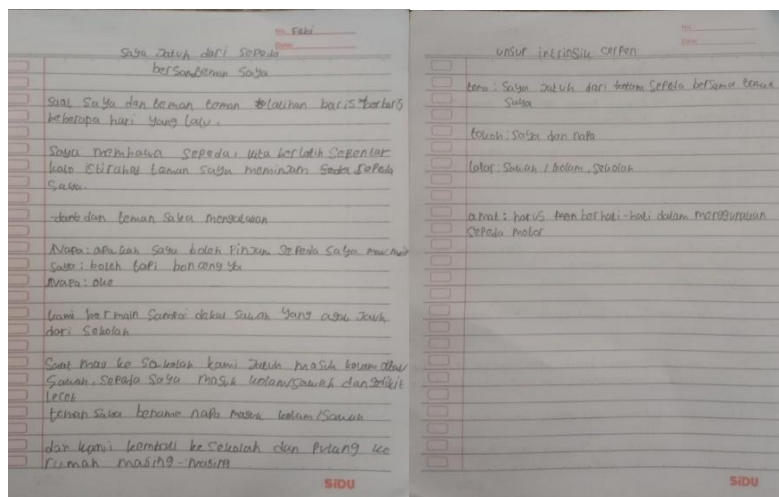 No. Febi
Date:
Saya Jatuh dari Sepeda
bersama teman saya
saat saya dan teman teman latihan baris berbaris
beberapa hari yang lalu.
Saya membawa sepeda, kita berlatih sebentar
kalo istirahat teman saya meminjam sepeda
saya.
dan teman saya mengatakan
Napa: apakah saya boleh Pinjam sepeda saya
saya: boleh tapi bonceng ya
Napa: oke
kami bermain sampai dekat sawah yang agak jauh
dari sekolah
Saat mau ke sekolah kami Jatuh masuk kolam atau
sawah, sepeda saya masuk kolam/sawah dan sedikit
lecet
teman saya bernama napa masuk kolam/sawah
dan kami kembali ke sekolah dan Pulang ke
rumah masing-masing
SiDU
No.
Date:
unsur intrinsik cerpen
tema: Saya Jatuh dari sepeda bersama teman
saya
tokoh: saya dan napa
latar: sawah / kolam, sekolah
amat: harus berhati-hati dalam menggunakan
sepeda motor
SiDU